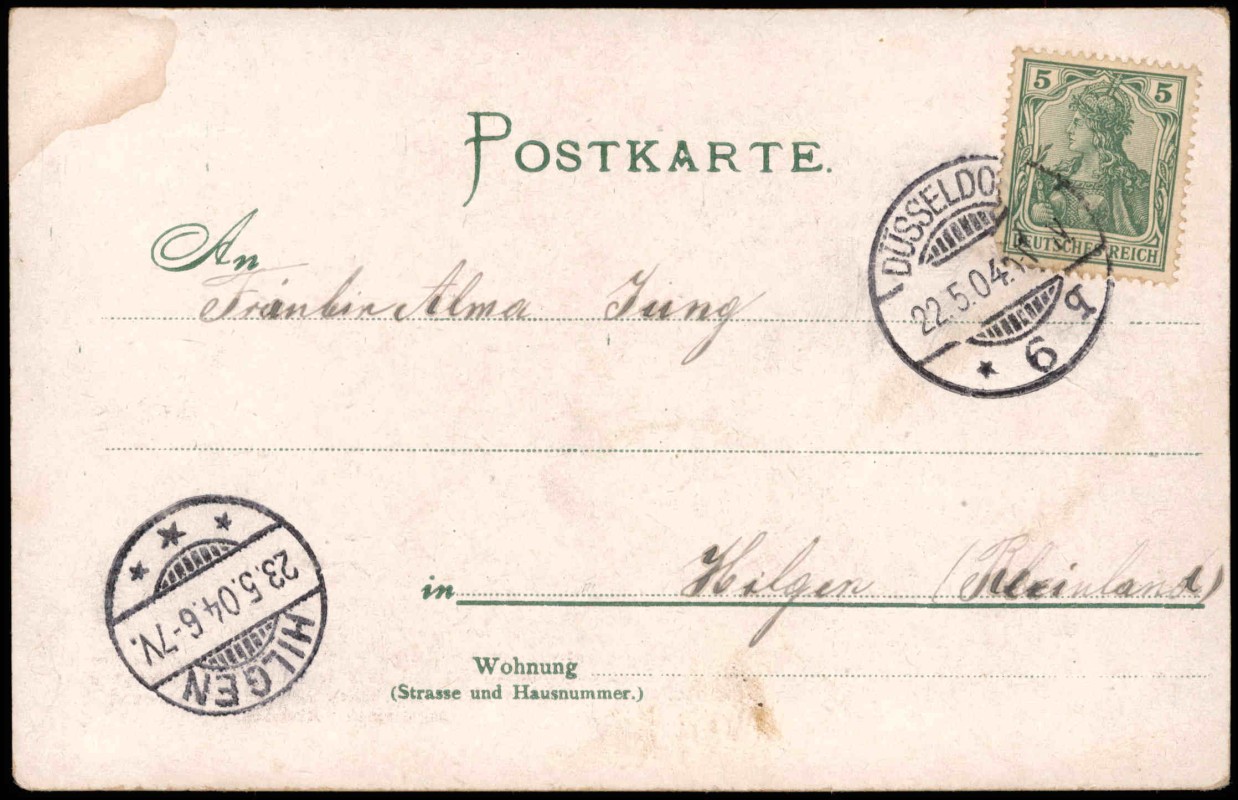 POSTKARTE.
5 5
DEUTSCHES REICH
DÜSSELDO
22.5.04
* 6 q
An
Fräulein Alma Jung
in Hilgen (Rheinland)
Wohnung
(Strasse und Hausnummer.)
23.5.04.6-7V.
HILGEN